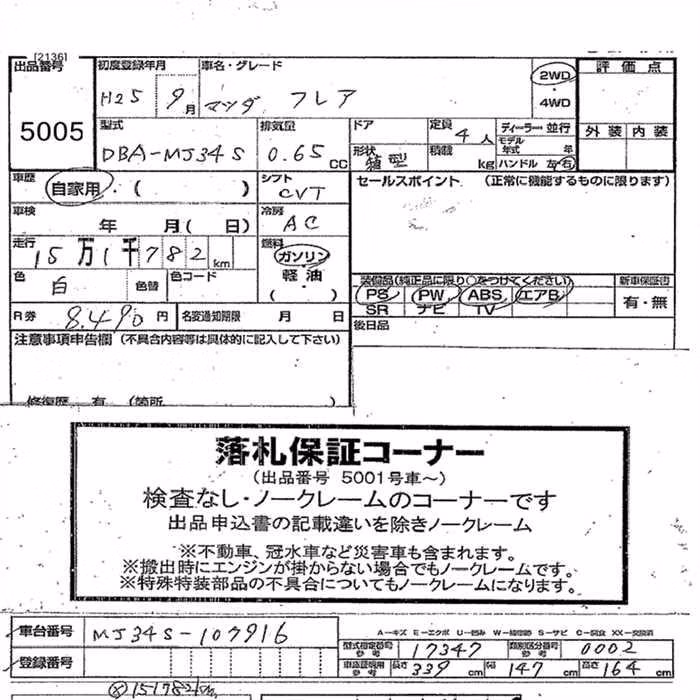 [2136]
出品番号 初度登録年月 車名・グレード 評価点
H25 9月 マツダ フレア 2WD・4WD
5005
型式 排気量 ドア 定員 4人 ディーラー・並行 外装 内装
DBA-MJ34S 0.65CC 形状 箱型 積載 kg モデル年式 年 ハンドル 左・右
車歴 自家用・( ) シフト CVT セールスポイント (正常に機能するものに限ります)
車検 年 月( 日) 冷房 AC
走行 15万1千782km 燃料 ガソリン・軽油・( )
色 白 色替 色コード 装備品(純正品に限り○をつけてください) 新車保証書
PS PW ABS エアB 有・無
SR ナビ TV
R券 8,490円 名変通知期限 月 日 後日品
注意事項申告欄 (不具合内容等は具体的に記入して下さい)
修復歴 有 (箇所 )
落札保証コーナー
(出品番号 5001号車~)
検査なし・ノークレームのコーナーです
出品申込書の記載違いを除きノークレーム
※不動車、冠水車など災害車も含まれます。
※搬出時にエンジンが掛からない場合でもノークレームです。
※特殊特装部品の不具合についてもノークレームになります。
車台番号 MJ34S-107916
A-キズ E-エクボ U-凹み W-補修跡 S-サビ C-腐食 XX-交換済
型式指定番号 参考 17347 類別区分番号 参考 0002
登録番号 車庫証明用 参考 長さ 339cm 幅 147cm 高さ 164cm
151782km